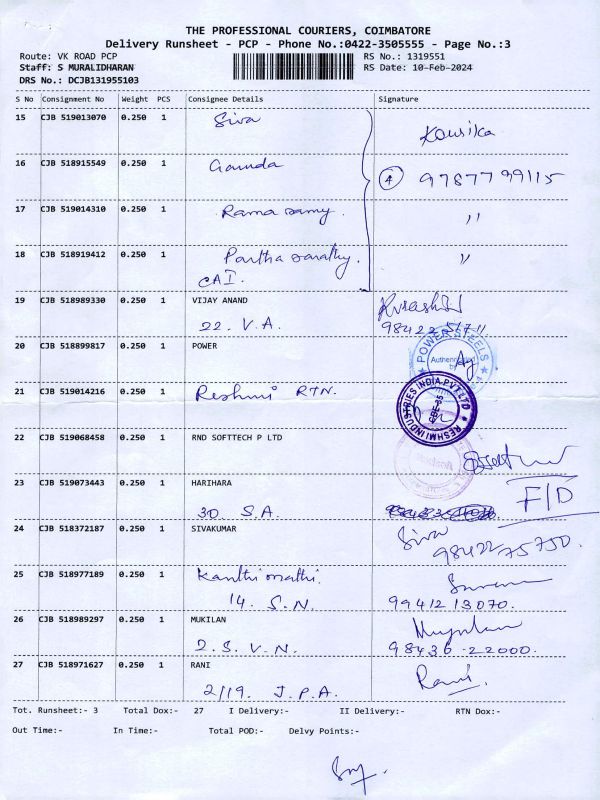 THE PROFESSIONAL COURIERS, COIMBATORE
Delivery Runsheet - PCP - Phone No.:0422-3505555 - Page No.:3
Route: VK ROAD PCP RS No.: 1319551
Staff: S MURALIDHARAN RS Date: 10-Feb-2024
DRS No.: DCJB131955103
S No Consignment No Weight PCS Consignee Details Signature
15 CJB 519013070 0.250 1 Siva Kousika
16 CJB 518915549 0.250 1 Gounda 4 9787799115
17 CJB 519014310 0.250 1 Rama samy. "
18 CJB 518919412 0.250 1 Partha sarathy. "
CAI.
19 CJB 518989330 0.250 1 VIJAY ANAND
22. V.A. 98422
20 CJB 518899817 0.250 1 POWER
POWER STEELS
21 CJB 519014216 0.250 1 Reshmi RTN.
RESHMI INDUSTRIES INDIA PVT LTD
22 CJB 519068458 0.250 1 RND SOFTTECH P LTD
23 CJB 519073443 0.250 1 HARIHARA F/D
30 S.A.
24 CJB 518372187 0.250 1 SIVAKUMAR Siva
98422 75750.
25 CJB 518977189 0.250 1 Kanthi mathi.
14. S.N. 99412 13070.
26 CJB 518989297 0.250 1 MUKILAN
2. S. V. N. 98436-22000.
27 CJB 518971627 0.250 1 RANI Rani.
2/19. J.P.A.
Tot. Runsheet:- 3 Total Dox:- 27 I Delivery:- II Delivery:- RTN Dox:-
Out Time:- In Time:- Total POD:- Delvy Points:-